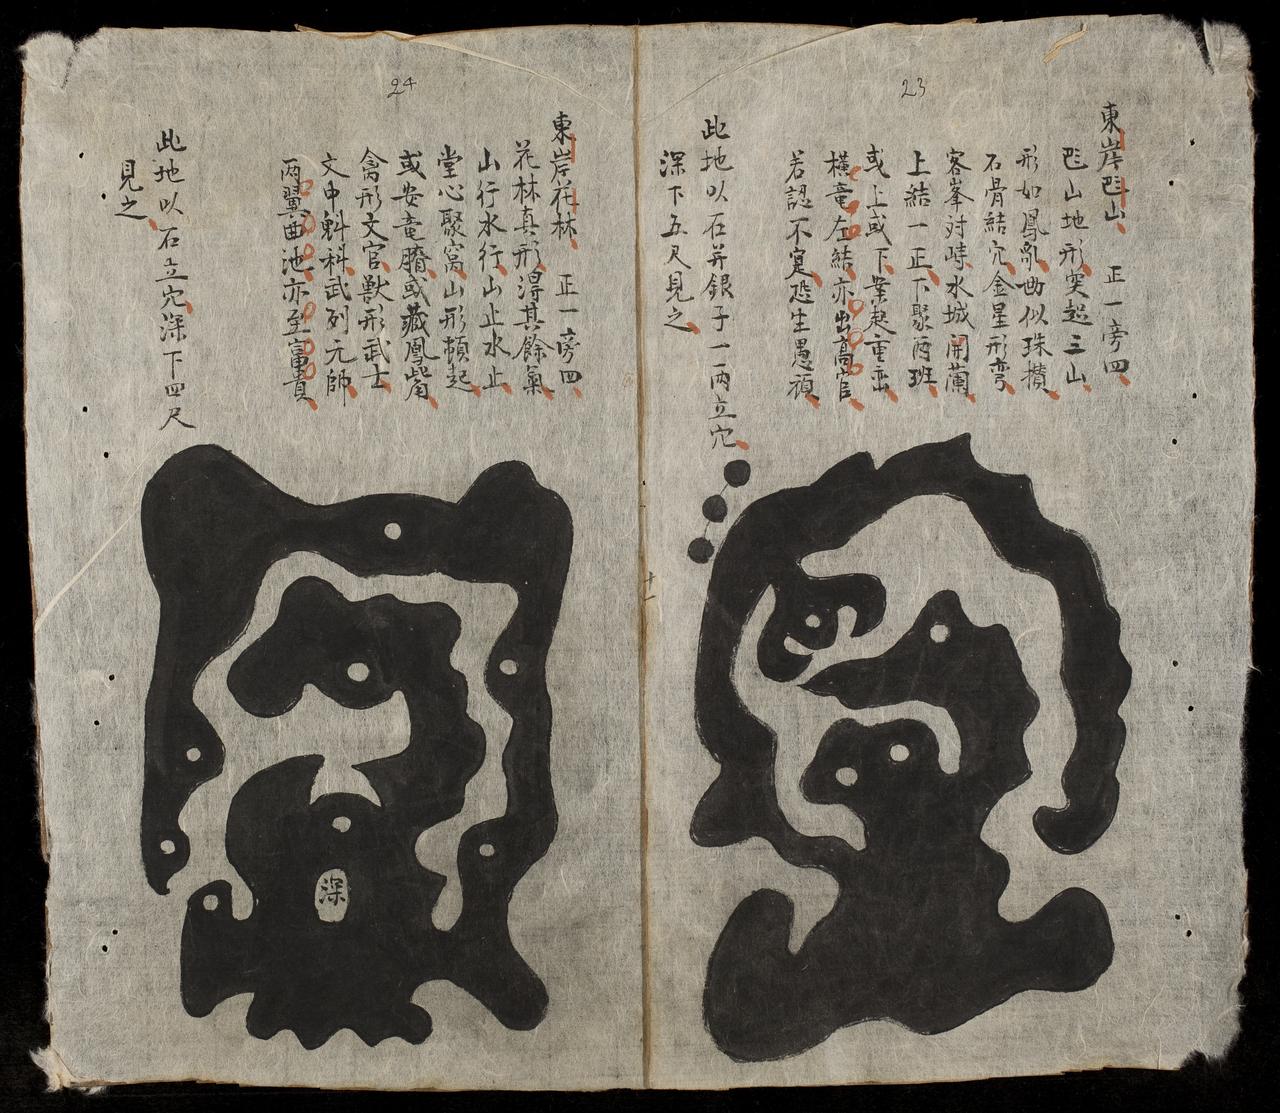 23
東岸𦊚山 正一旁四
𦊚山地形突起三山
形如鳳亂曲似珠攅
石骨結穴金星形弯
客峯対峙水城開蘭
上結一正下聚両班
或上或下業起重巒
横竜左結亦出高官
若認不寔恐生愚頑
此地以石并銀子一両立穴
深下五尺見之
24
東岸花林 正一旁四
花林真形得其餘氣
山行水行山止水止
堂心聚窩山形頓起
或安竜臍或藏鳳觜
禽形文官獣形武士
文中魁科武列元帥
両翼曲池亦至富貴
此地以石立穴深下四尺
見之
深
十一